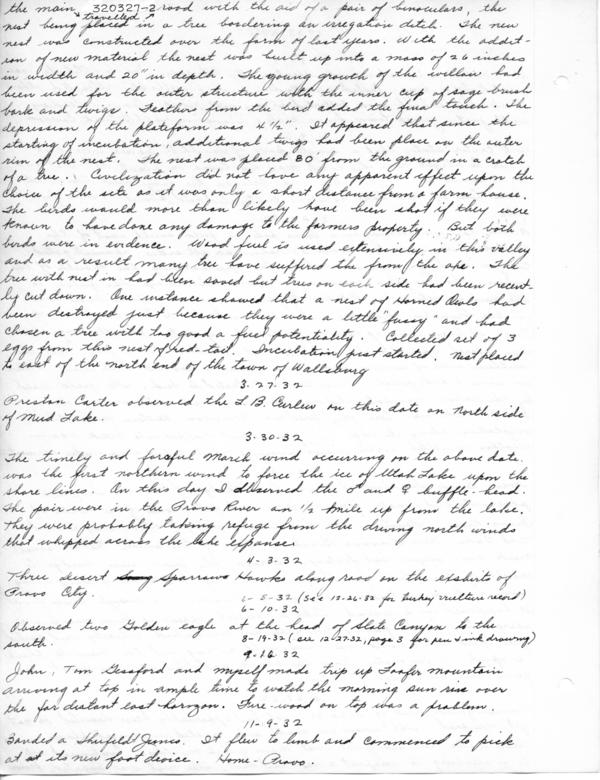 the main 320327-2 travelled road with the aid of a pair of binoculars, the
nest being placed in a tree bordering an irregation ditch. The new
nest was constructed over the form of last years. With the addit-
ion of new material the nest was built up into a mass of 26 inches
in width and 20" in depth. The young growth of the willow had
been used for the outer structure with the inner cup of sage brush
bark and twigs. Feathers from the bird added the final touch. The
depression of the plateform was 4 1/2". It appeared that since the
starting of incubation, additional twigs had been place on the outer
rim of the nest. The nest was placed 80' from the ground in a crotch
of a tree. Civilization did not have any apparent effect upon the
choice of the site as it was only a short distance from a farm house.
The birds would more than likely have been shot if they were
known to have done any damage to the farmers property. But both
birds were in evidence. Wood fuel is used extensively in this valley
and as a result many tree have suffered the from the axe. The
tree with nest in had been saved but trees on each side had been recent-
ly cut down. One instance showed that a nest of Horned Owls had
been destroyed just because they were a little "fussy" and had
chosen a tree with too good a fuel potentiality. Collected set of 3
eggs from this nest of red-tail. Incubation just started. Nest placed
to east of the north end of the town of Wallsburg
3-27-32
Preston Carter observed the L.B. Curlew on this date on North side
of Mud Lake.
3-30-32
The timely and forceful March wind occurring on the above date
was the first northern wind to force the ice of Utah Lake upon the
shore lines. On this day I observed the ♂ and ♀ buffle-head.
The pair were in the Provo River an 1/2 mile up from the lake.
They were probably taking refuge from the driving north winds
that whipped across the lake expanse.
4-3-32
Three desert Sparrows Hawks along road on the exskirts of
Provo City.
6-5-32 (See 12-26-32 for turkey vulture record)
6-10-32
Observed two Golden eagle at the head of Slate Canyon to the
south.
8-19-32 (see 12-27-32, page 3 for pen & ink drawing)
9-16-32
John, Tom Gessford and myself made trip up Loafer mountain
arriving at top in ample time to watch the morning sun rise over
the far distant east horizon. Fire-wood on top was a problem.
11-9-32
Banded a Shufeldt Junco. It flew to limb and commenced to pick
at at its new foot device. Home-Provo.